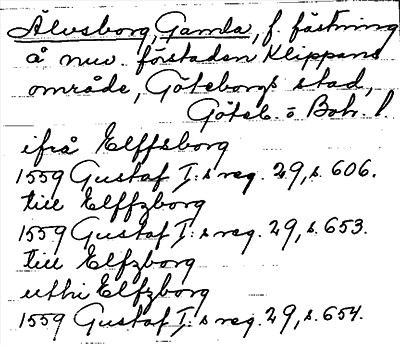 Älvsborg, Gamla, f. fästning
å nuv. förstaden Klippans
område, Göteborgs stad,
Göteb. o Boh. l.
ifrå Elffsborg
1559 Gustaf I:s reg. 29, s. 606.
till Elffzborg
1559 Gustaf I:s reg. 29, s. 653.
till Elfzborg
uthi Elfzborg
1559 Gustaf I:s reg. 29, s. 654.